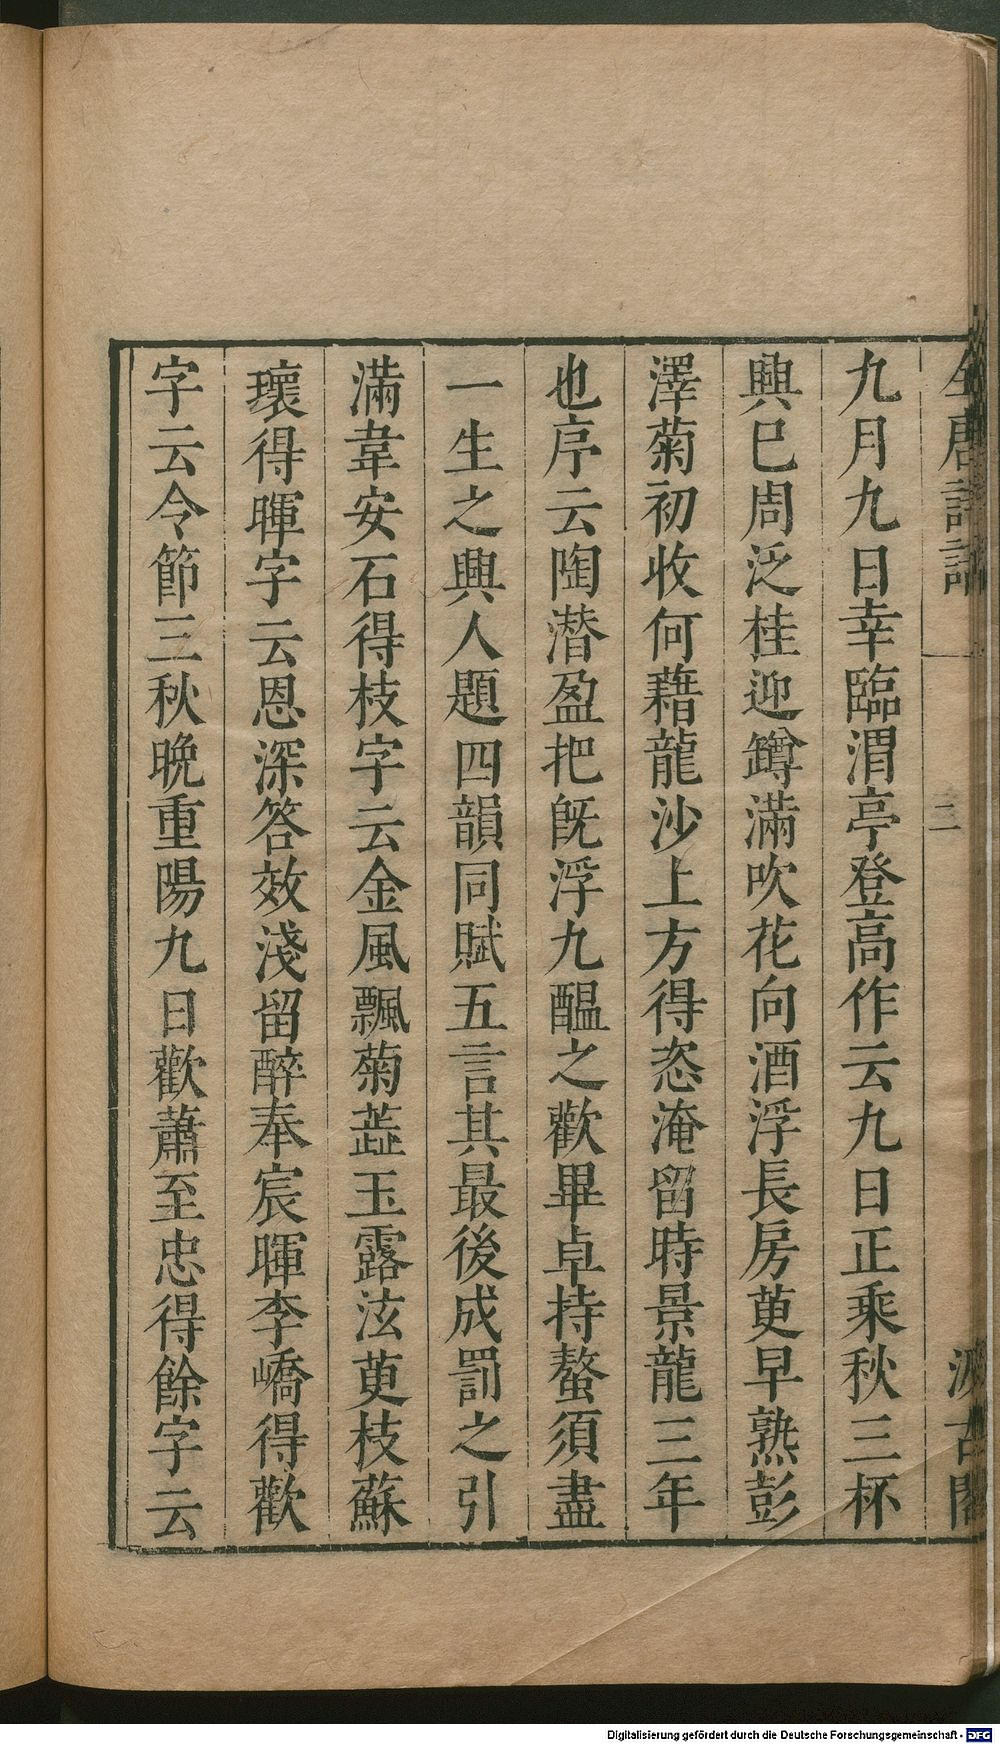 全唐詩話 二 汲古閣
九月九日幸臨渭亭登高作云九日正乘秋三杯
興已周泛桂迎罇滿吹花向酒浮長房萸早熟彭
澤菊初收何藉龍沙上方得恣淹留時景龍三年
也序云陶潜盈把旣浮九醞之歡畢卓持螯須盡
一生之興人題四韻同賦五言其最後成罰之引
滿韋安石得枝字云金風飄菊蕋玉露泫萸枝蘇
瓌得暉字云恩深答效淺留醉奉宸暉李嶠得歡
字云令節三秋晚重陽九日歡蕭至忠得餘字云
Digitalisierung gefördert durch die Deutsche Forschungsgemeinschaft - DFG